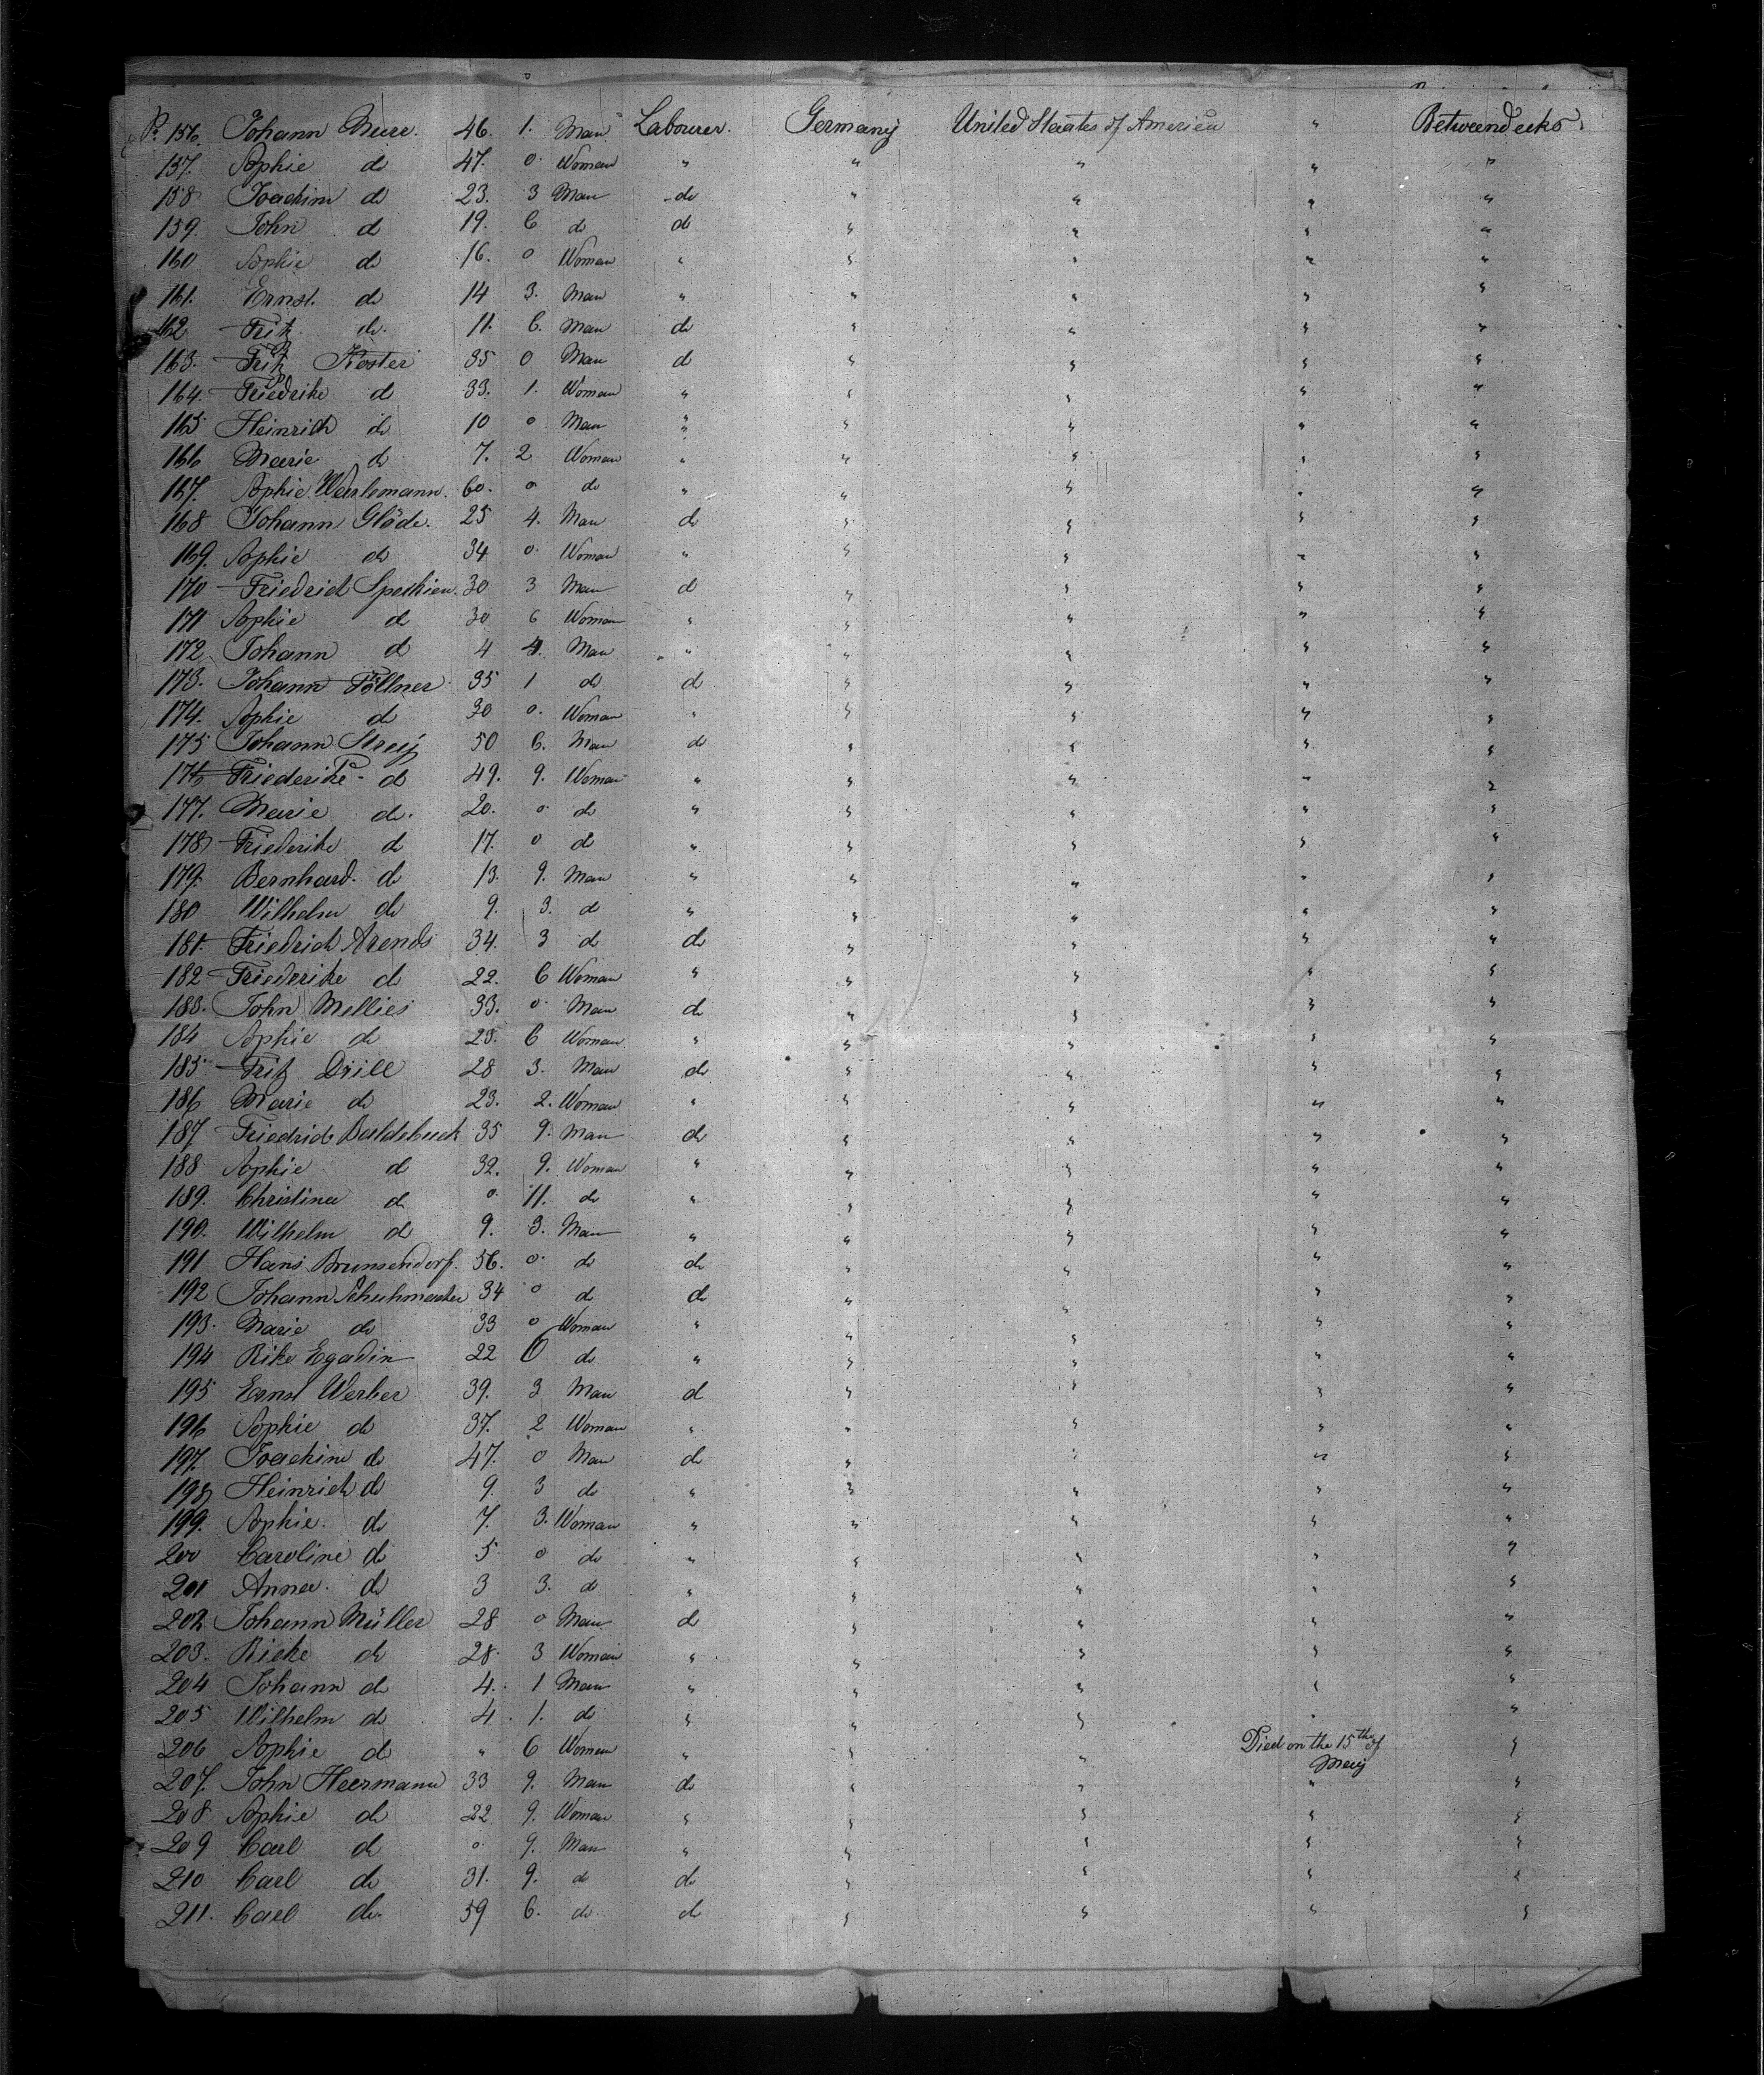 No. 156. Johann Mure. 46. 1. Man Labourer. Germany United States of America " Betweendecks.
157. Sophie do 47. 0. Woman " " " " "
158 Joachim do 23. 3 Man do " " " "
159. John do 19. 6 do do " " " "
160 Sophie do 16. 0 Woman " " " " "
161. Ernst. do 14 3. Man " " " " "
162 Fritz do. 11. 6. Man do " " " "
163. Fritz Koster 35 0 Man do " " " "
164. Friedrike do 33. 1. Woman " " " " "
165 Heinrich do 10 0 Man " " " " "
166 Marie do 7. 2 Woman " " " " "
167. Sophie 60. 0 do " " " " "
168 Johann Glöde. 25 4. Man do " " " "
169. Sophie do 34 0. Woman " " " " "
170 Friedrich 30 3 Man do " " " "
171 Sophie do 30 6 Woman " " " " "
172 Johann do 4 4. Man " " " " "
173. Johann Föllner 35 1 do do " " " "
174. Sophie do 30 0. Woman " " " " "
175 Johann 50 6. Man do " " " "
176 Friederike do 49. 9. Woman " " " " "
177. Marie do. 20. 0. do " " " " "
178 Friederike do 17. 0 do " " " " "
179. Bernhard. do 13. 9. Man " " " " "
180 Wilhelm do 9. 3. do " " " " "
181. Friedrich Arends 34. 3 do do " " " "
182 Friederike do 22. 6 Woman " " " " "
183. John Mellies 33. 0. Man do " " " "
184 Sophie do 25. 6 Woman " " " " "
185 Fritz Drill 28 3. Man do " " " "
186 Marie do 23. 2. Woman " " " " "
187 Friedrich 35 9. Man do " " " "
188 Sophie do 32. 9. Woman " " " " "
189. Christina do 0. 11. do " " " " "
190. Wilhelm do 9. 3. Man " " " " "
191 Hans Brunsendorf. 56. 0. do do " " " "
192 Johann Schuhmacher 34 0 do do " " " "
193. Marie do 33 0 Woman " " " " "
194 Rike Egadin 22 6 do " " " " "
195 Ernst Werber 39. 3 Man do " " " "
196 Sophie do 37. 2 Woman " " " " "
197. Joachim do 47. 0 Man do " " " "
198 Heinrich do 9. 3 do " " " " "
199. Sophie. do 7. 3. Woman " " " " "
200 Caroline do 5 0 do " " " " "
201 Anna. do 3 3. do " " " " "
202 Johann Müller 28 0 Man do " " " "
203. Rieke do 28. 3 Woman " " " " "
204 Johann do 4. 1 Man " " " " "
205 Wilhelm do 4. 1. do " " " " "
206 Sophie do " 6 Woman " " " Died on the 15th of May "
207. John Heermann 33 9. Man do " " " "
208 Sophie do 22 9. Woman " " " " "
209 Carl do 0. 9. Man " " " " "
210 Carl do 31. 9. do do " " " "
211. Carl do. 59 6. do do " " " "